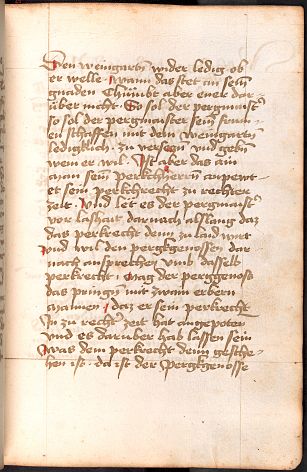 Den weingartn̄ wider ledig ob
er welle. wann das stet an sein̄
gnaden Chumbt aber ener dar-
über nicht. So sol der pergmaistˀ
so sol der pergmaister sein̄ frum-
en schaffen mit dem weingartn̄
ledigklich. zu verseczn̄ vnd gebn̄
wem er wil. Ist aber das ain
man sein̄ perkchherrn̄ anpewt-
et sein perkchrecht zu rechter
zeit. Vnd let es der pergmaistˀ
vor lashait darnach abslang daz
das perkrecht denn zu land wirt
vnd wil den pergkgenossen dar
nach ansprechen vmb dasselb
perkrecht. mag der perggenoss
das pringn̄ mit zwain erbern
mannen. daz er sein perkrecht
In zu rechtˀ zeit hat angepoten
vnd es darüber hab lassen sein
was dem perkrecht denn gesche-
hen ist. da ist der pergkgenosse